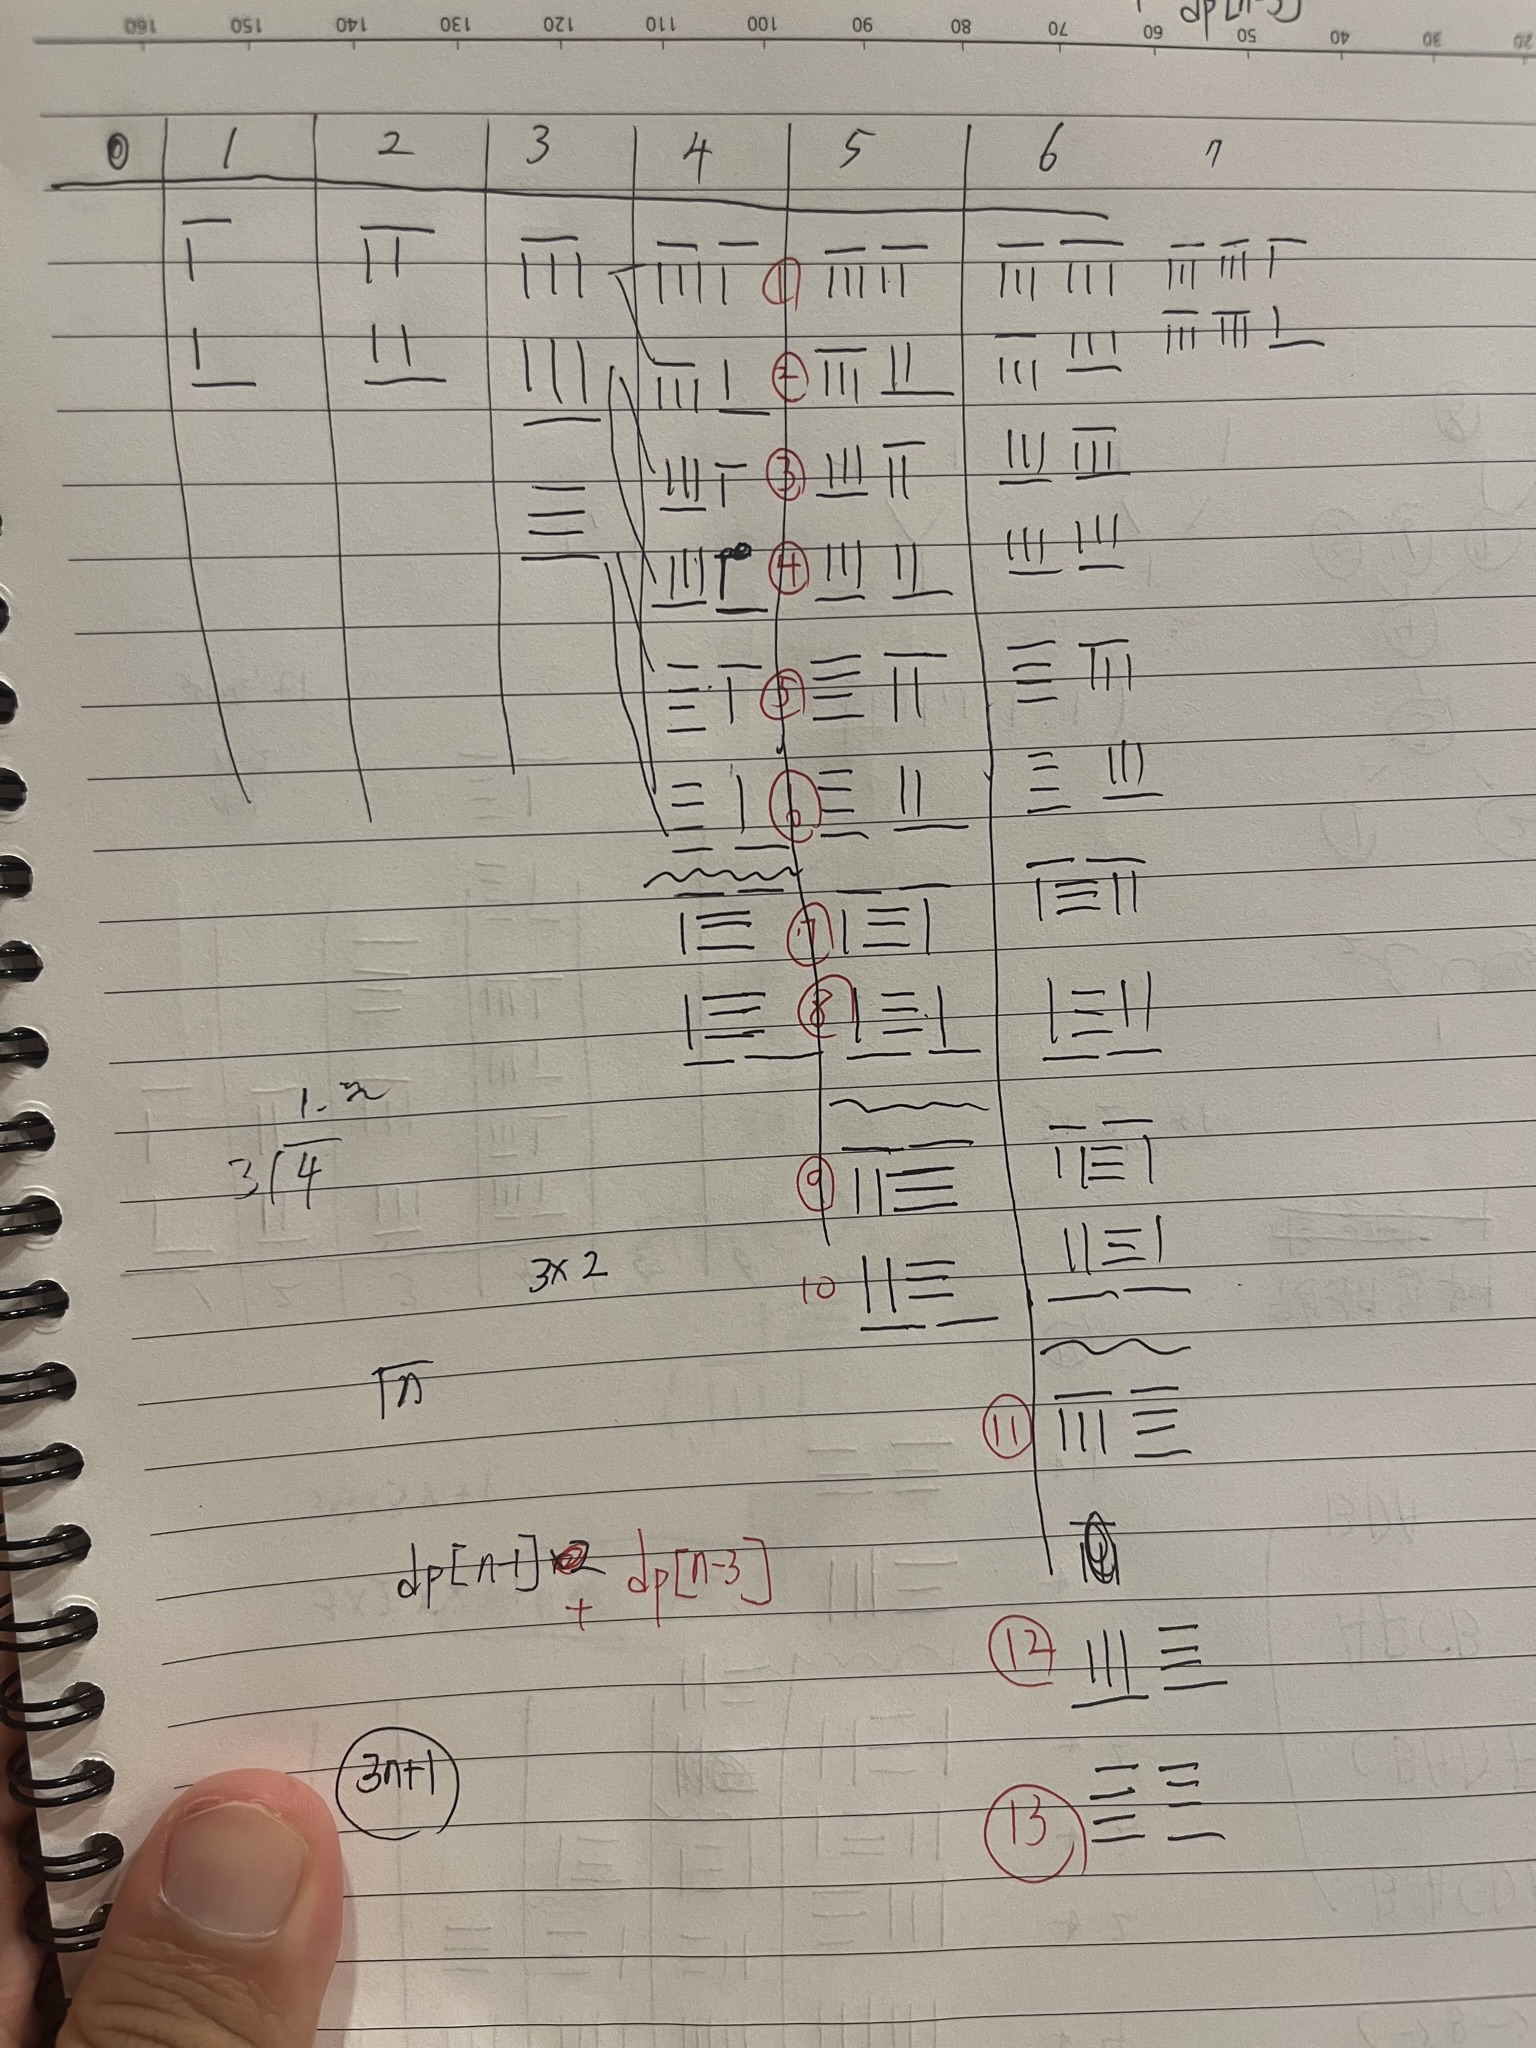 dp[n-3]
160 150 140 130 120 110 100 90 80 70 60 50 40 30 20
0 1 2 3 4 5 6 7
1
2
3
4
5
6
7
8
9
10
3 4
1.
3x2
n
11
dp[n-1] + dp[n-3]
12
3n+1
13